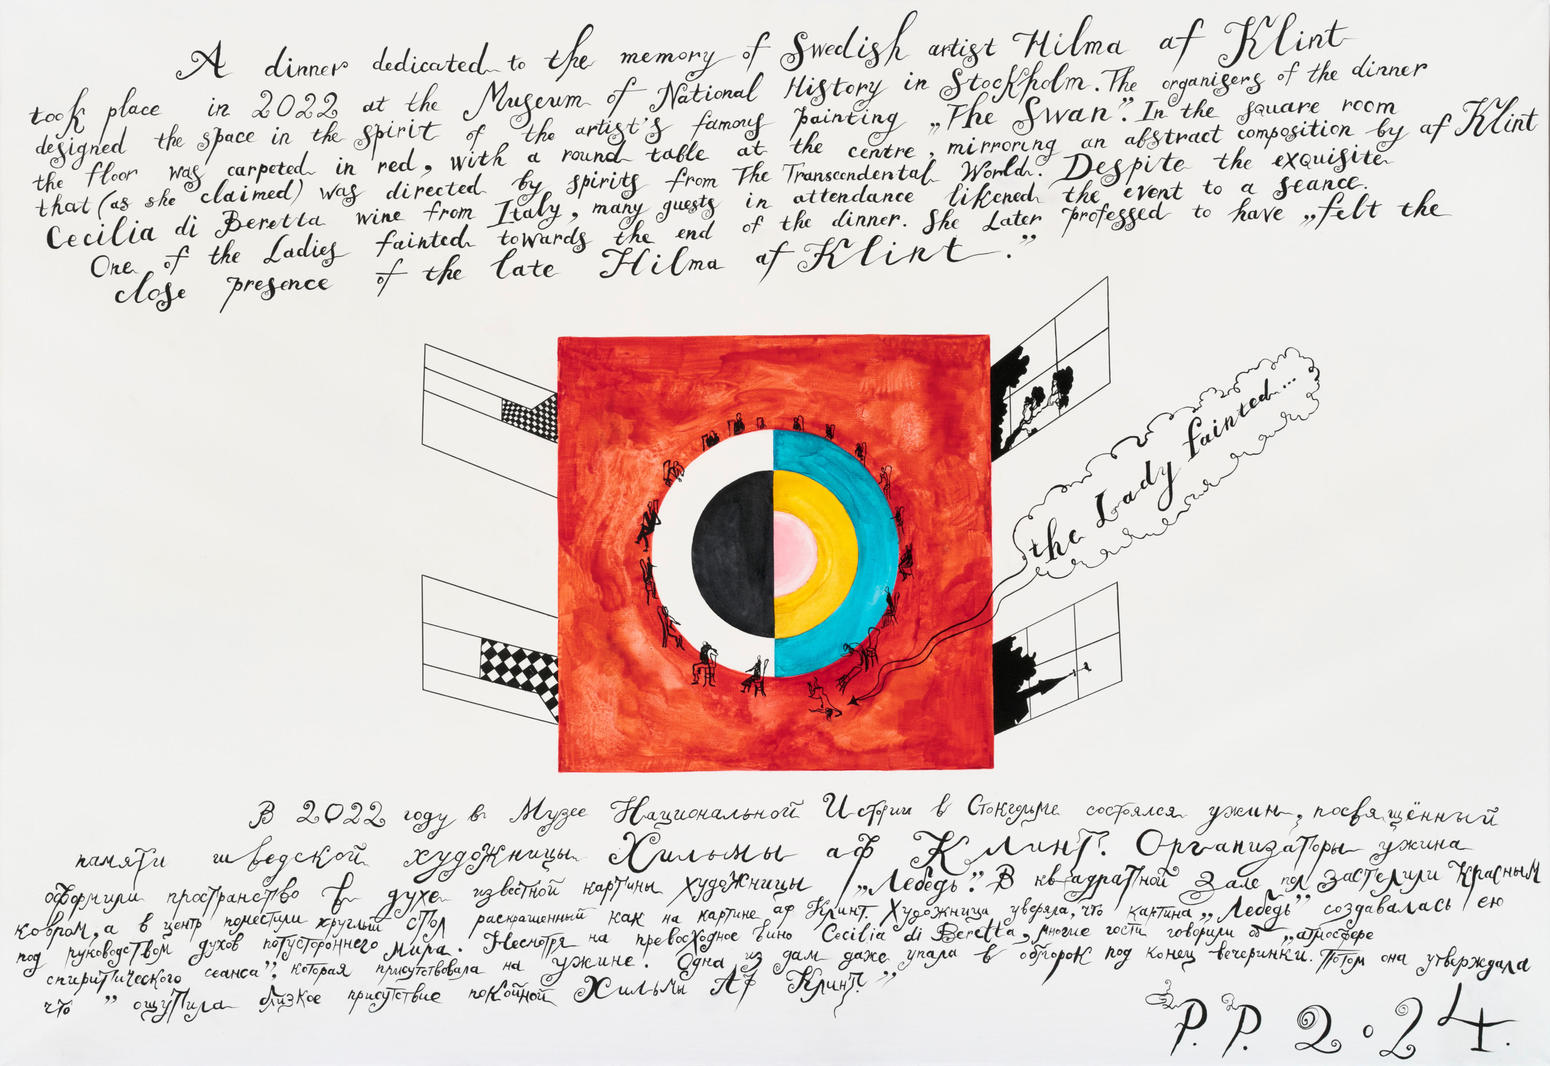 A dinner dedicated to the memory of Swedish artist Hilma af Klint
took place in 2022 at the Museum of National History in Stockholm. The organisers of the dinner
designed the space in the spirit of the artist's famous painting „The Swan”. In the square room
the floor was carpeted in red, with a round table at the centre, mirroring an abstract composition by af Klint
that (as she claimed) was directed by spirits from The Transcendental World. Despite the exquisite
Cecilia di Beretta wine from Italy, many guests in attendance likened the event to a seance.
One of the Ladies fainted towards the end of the dinner. She Later professed to have „felt the
close presence of the late Hilma af Klint.”
the Lady fainted...
В 2022 году в Музее Национальной Истории в Стокгольме состоялся ужин, посвящённый
памяти шведской художницы Хильмы аф Клинт. Организаторы ужина
оформили пространство в духе известной картины художницы „Лебедь”. В квадратной зале пол застелили красным
ковром, а в центр поместили круглый стол раскрашенный как на картине аф Клинт. Художница уверяла, что картина „Лебедь” создавалась ею
под руководством духов потустороннего мира. Несмотря на превосходное вино Cecilia di Beretta, многие гости говорили об „атмосфере
спиритического сеанса”, которая присутствовала на ужине. Одна из дам даже упала в обморок под конец вечеринки. Потом она утверждала
что ” ощутила близкое присутствие покойной Хильмы Аф Клинт.”
P. P. 2024.